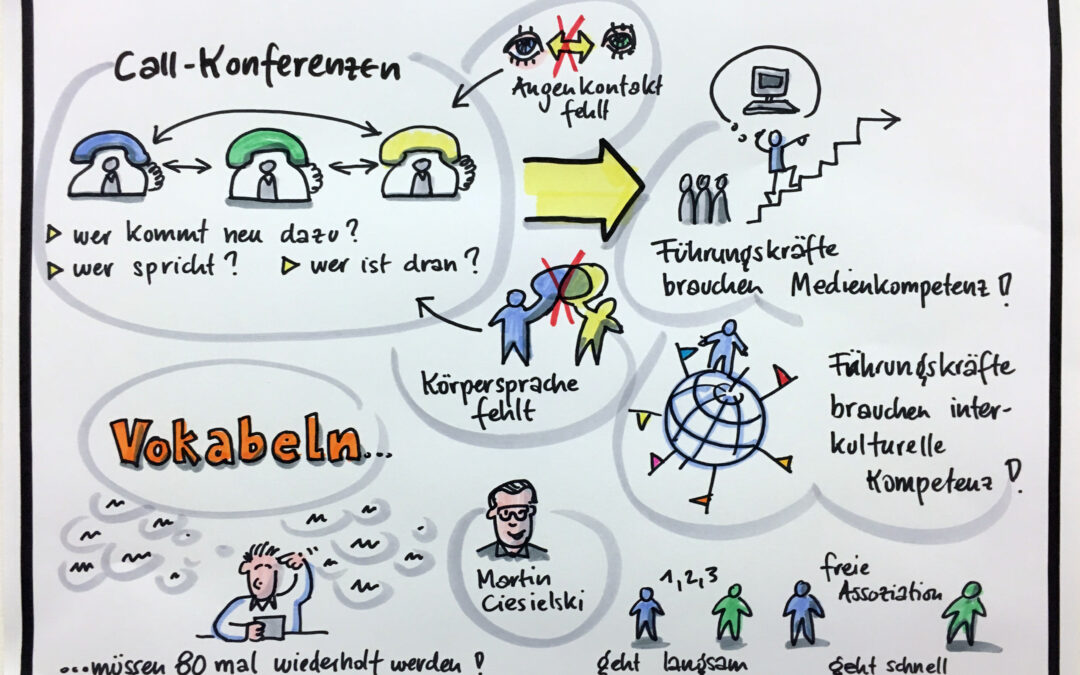 Call-Konferenzen
Augenkontakt
fehlt
▷ wer kommt neu dazu?
▷ wer spricht? ▷ wer ist dran?
Führungskräfte
brauchen Medienkompetenz!
Körpersprache
fehlt
Führungskräfte
brauchen inter-
kulturelle
Kompetenz!
Vokabeln...
...müssen 80 mal wiederholt werden!
Martin
Ciesielski
1, 2, 3
geht langsam
freie
Assoziation
geht schnell